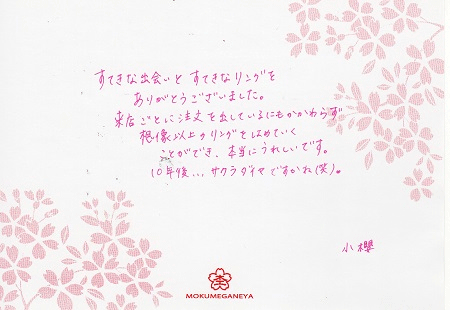 すてきな出会いと すてきなリングを
ありがとうございました。
来店ごとに注文を出しているにもかかわらず
想像以上のリングをはめていく
ことができ、本当にうれしいです。
10年後... サクラダイヤですかね(笑)。
小櫻
MOKUMEGANEYA